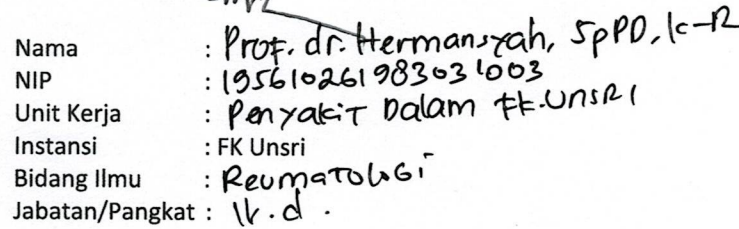 Nama : Prof. dr. Hermansyah, SpPD, K-R
NIP : 195610261983031003
Unit Kerja : Penyakit Dalam FK.UNSRI
Instansi : FK Unsri
Bidang Ilmu : Reumatologi
Jabatan/Pangkat : IV.d .